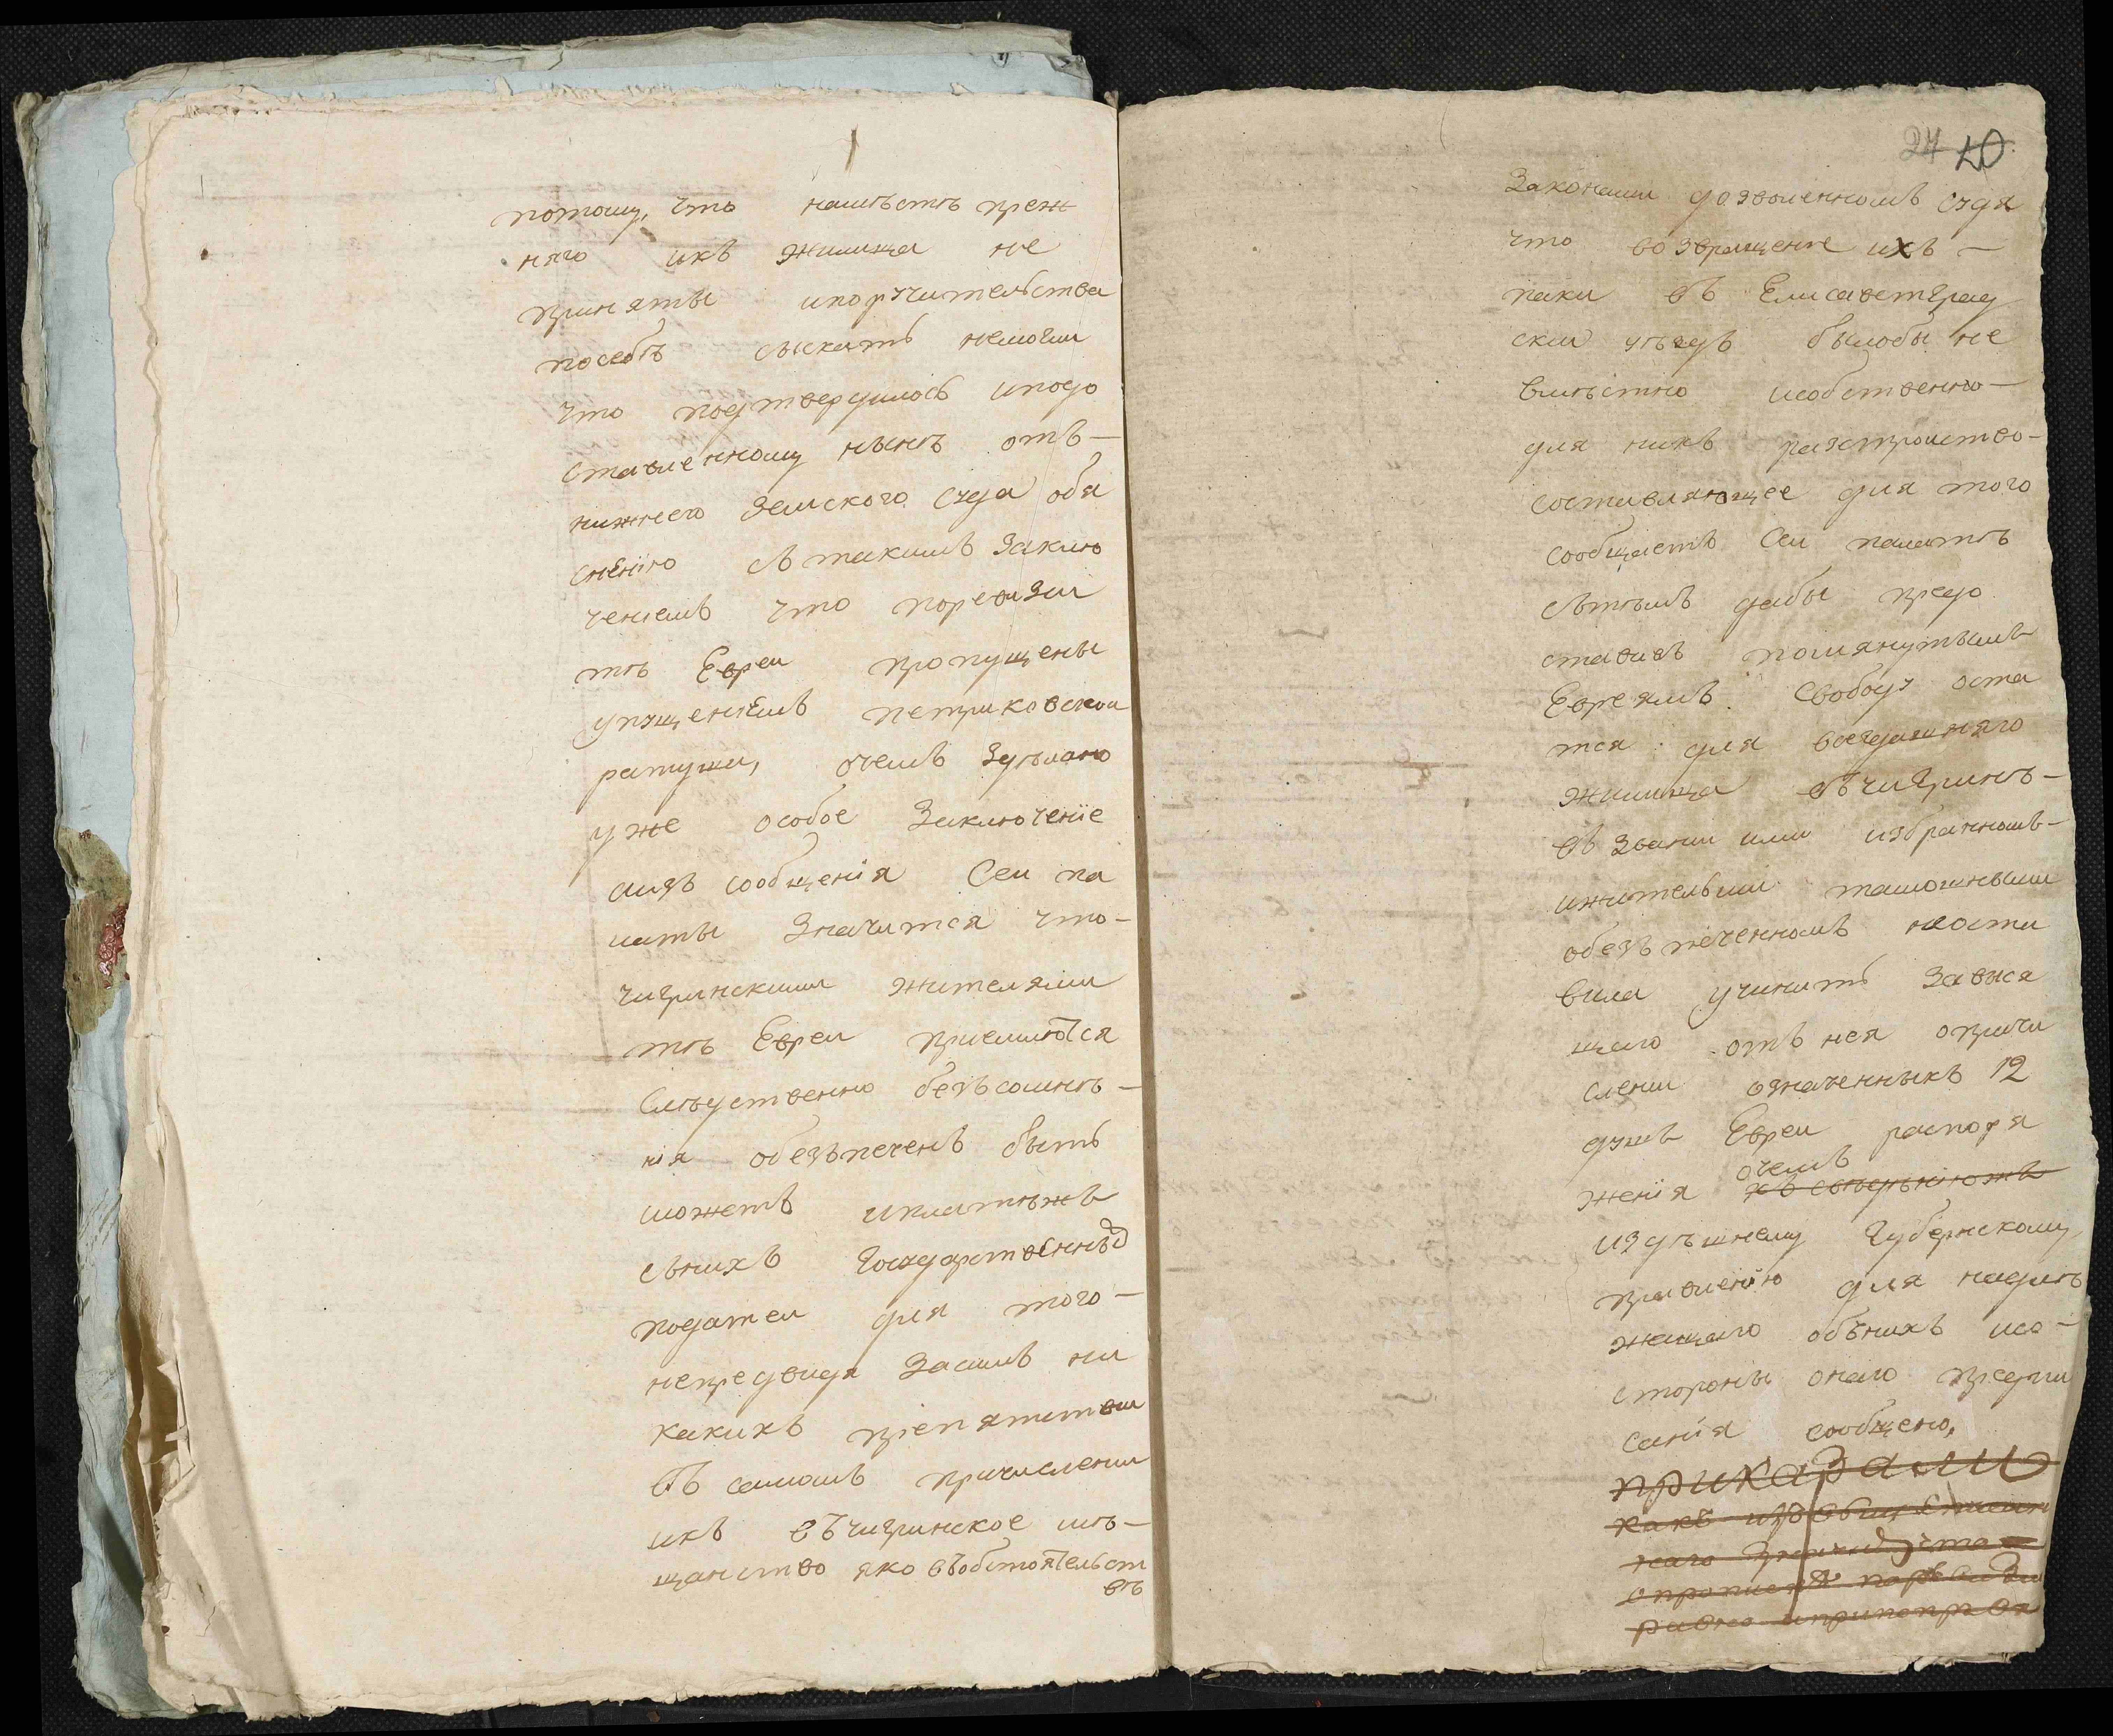 потому, что наместѣ преж
няго ихъ жилища не
приняты ипоручительства
посебѣ сыскать немогли
что подтвердилось иподо
ставленному нынѣ отъ—
нижнего земского суда обя
снению съ такимъ заклю
чениемъ что поревизи
тѣ Евреи пропущены
упущениемъ петриковской
ратуши, очемъ зделано
уже особое Заключение
аизъ сообщения Сеи па
латы Значится что—
чигринскими жителями
тѣ Евреи приемлются
Следственно безъсомнѣ—
нія обезъпеченъ быть
можетъ иплатежъ
сънихъ Государственныхъ
податеи для того—
непредвидя засимъ ни
какихъ препятствии
въ самомъ причислении
ихъ въчигринское мѣ—
щанство яко въобстоятельст
вѣ
27 40
Законами дозволенномъ судя
что возвращение ихъ—
паки въ Елисаветград
скии уѣздъ былобы не
вмѣстно исобственно—
для нихъ разстроиство—
составляющее для того
сообщаетъ Сеи палатѣ
сътѣмъ дабы предо
ставивъ помянутымъ
Евреямъ Свободу оста
тся для всегдашняго
жилища въчигринѣ—
въ звании ими избранномъ—
ижительми тамошными
обезъпеченномъ неоста
вила учинить завися
щаго отъ нея опричи
слении означенныхъ 12
душъ Евреи распоря
жения очемъ
къ сведениюжъ
издѣшнему Губернскому
правлению для надлѣ
жащаго обънихъ исо—
стороны онаго предпи
сания сообщено,
приказали
какъ изъ
наго что